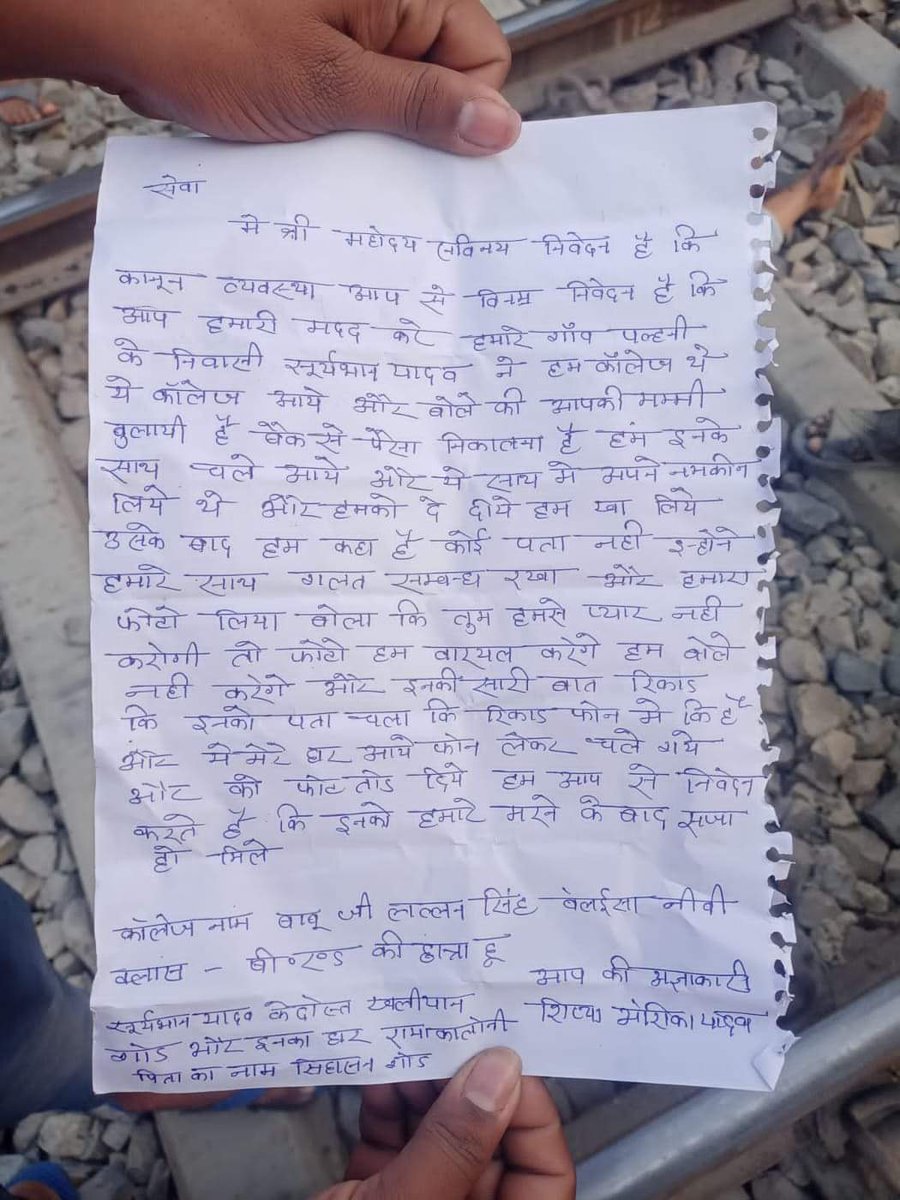 सेवा
मे श्री महोदय सविनय निवेदन है कि
कानून व्यवस्था आप से विनम्र निवेदन है कि
आप हमारी मदद करे हमारे गाँव पल्हनी
के निवासी सूर्यभान यादव ने हम कॉलेज थे
ये कॉलेज आये और बोले की आपकी मम्मी
बुलायी है बैंक से पैसा निकालना है हम इनके
साथ चले आये और ये साथ मे अपने नमकीन
लिये थे और हमको दे दीये हम खा लिये
उसके बाद हम कहा है कोई पता नही इन्होने
हमारे साथ गलत सम्बन्ध रखा और हमारा
फोटो लिया बोला कि तुम हमसे प्यार नही
करोगी तो फोटो हम वारयल करेगे हम बोले
नही करेगे और इनकी सारी बात रिकाड
कि इनको पता चला कि रिकाड फोन मे कि है
और ये मेरे घर आये फोन लेकर चले गये
और को फोट तोड दिये हम आप से निवेदन
करते है कि इनको हमारे मरने के बाद सजा
हो मिले
कॉलेज नाम बाबू जी लल्लन सिंह बेलईसा नीवी
क्लास - बी०ए०ड की छात्रा हू
आप की अज्ञाकारी
शिष्या यादव
सूर्यभान यादव के दोस्त खलीयान
गोड और इनका घर रामा कालोनी
पिता का नाम सिहासन गोड